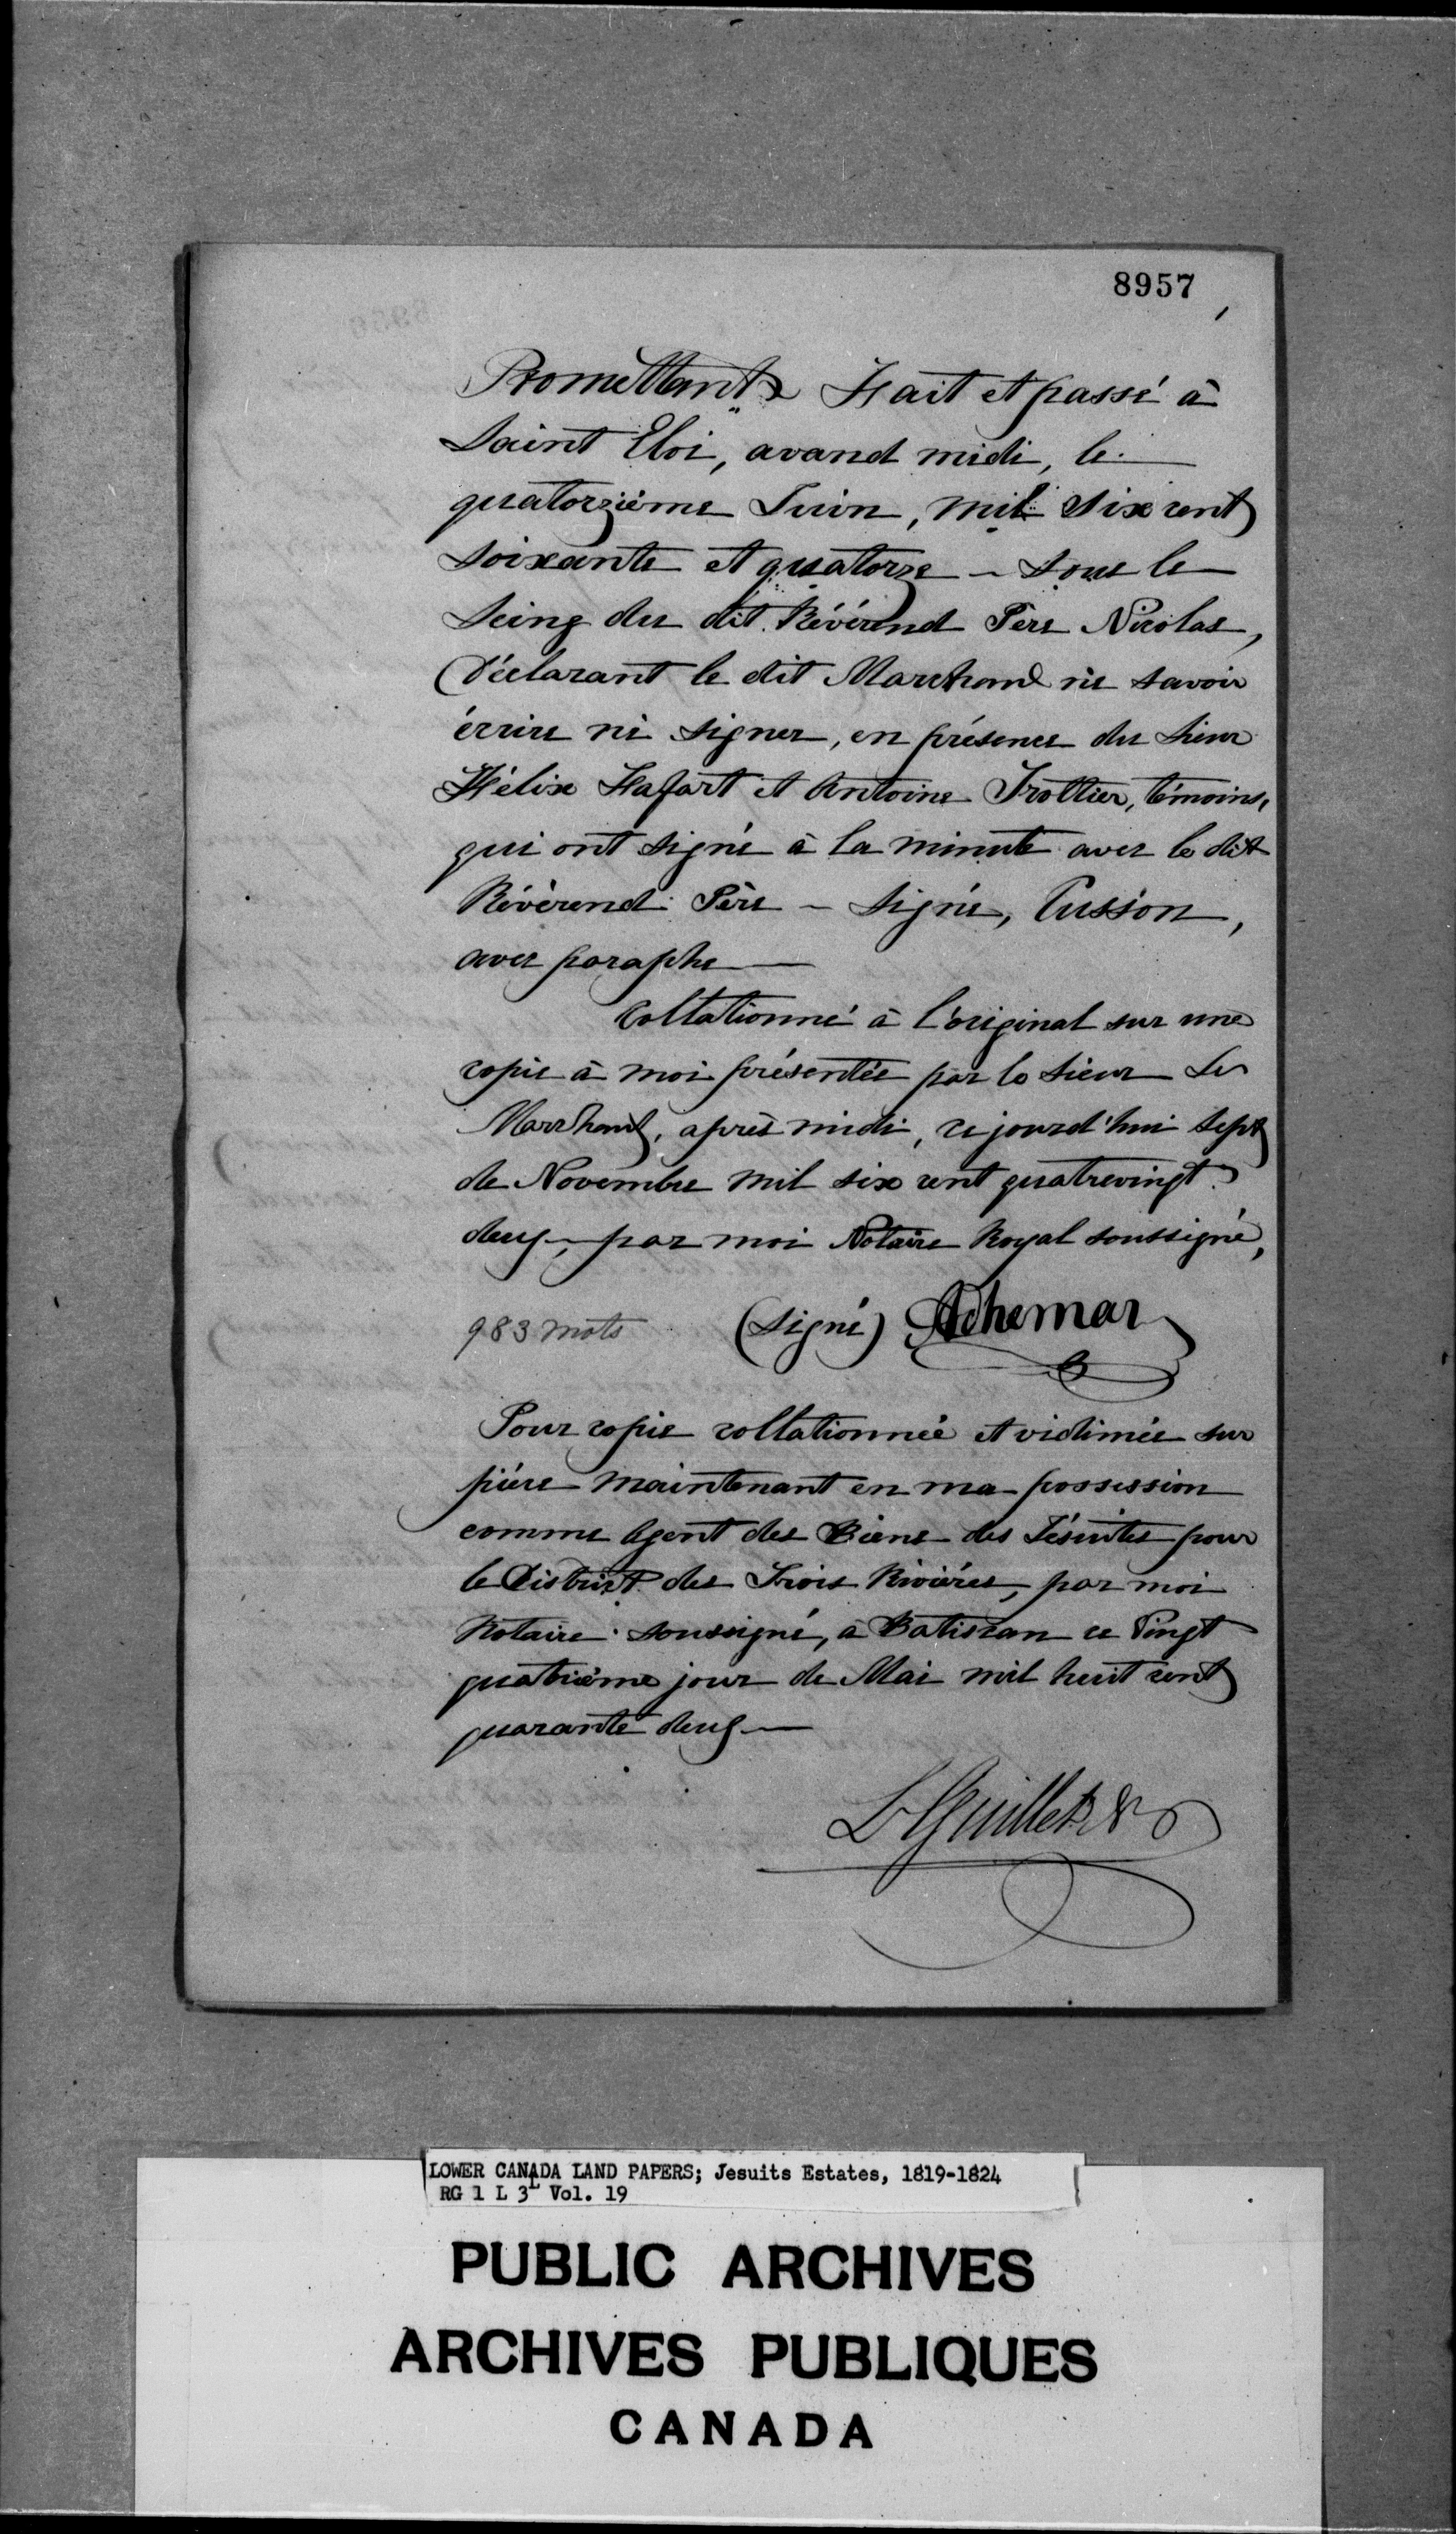 8957
Promettant & Fait et passé à
Saint Eloi, avand midi, le
quatorzième Juin, mil six cent
soixante et quatorze - sous le
Seing du dit Révérend Père Nicolas,
Déclarant le dit Marchand ne savoir
écrire ni signer, en présence du Sieur
Félix et Antoine Trottier, témoins,
qui ont signé à la minute avec le dit
Révérend Père - Signé, Cusson,
avec paraphe
Collationné à l'original sur une
copie à moi présentée par le Sieur Le
Marchand, après midi, ce jourd'hui sept
de Novembre mil six cent quatrevingt
deux, par moi Notaire Royal soussigné,
983 mots (Signé) Adhemar
Pour copie collationnée et vidimée sur
pièce maintenant en ma possession
comme Agent des Biens des Jésuites pour
le District des Trois Rivières, par moi
Notaire soussigné, à Batiscan ce Vingt
quatrième jour de Mai mil huit cent
quarante deux
L Guillet N P
LOWER CANADA LAND PAPERS; Jesuits Estates, 1819-1824
RG 1 L 3L Vol. 19
PUBLIC ARCHIVES
ARCHIVES PUBLIQUES
CANADA